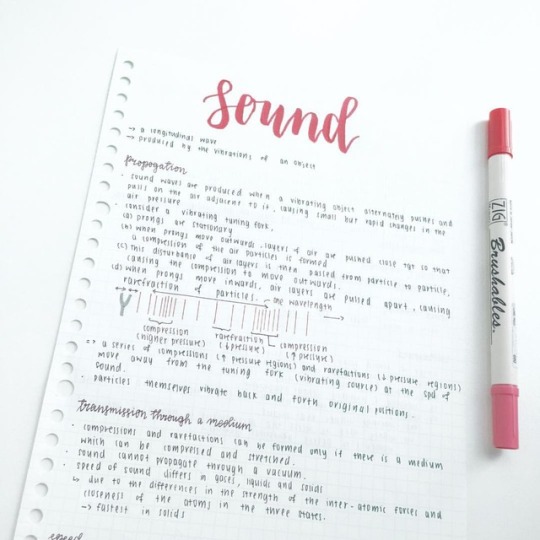 sound
→ a longitudinal wave
→ produced by the vibrations of an object
propogation
· sound waves are produced when a vibrating object alternating pushes and
pulls on the air adjacent to it, causing small but rapid changes in the
air pressure
· consider a vibrating tuning fork,
(a) prongs are stationary
(b) when prongs move outwards, layers of air are pushed close tgt so that
a compression of the air particles is formed
(c) this disturbance of air layers is then passed from particle to particle,
causing the compression to move outwards.
(d) when prongs move inwards, air layers are pulled apart, causing
rarefraction of particles.
one wavelength
compression rarefraction compression
(higher pressure) (↓ pressure) (↑ pressure)
=> a series of compressions (↑ pressure regions) and rarefactions (↓ pressure regions)
move away from the tuning fork (vibrating source) at the spd of
sound.
· particles themselves vibrate back and forth original positions.
transmission through a medium
· compressions and rarefactions can be formed only if there is a medium
which can be compressed and stretched.
· sound cannot propagate through a vacuum.
· speed of sound differs in gases, liquids and solids
↳ due to the differences in the strength of the inter-atomic forces and
closeness of the atoms in the three states.
→ fastest in solids
speed
ZIG
Brushables.